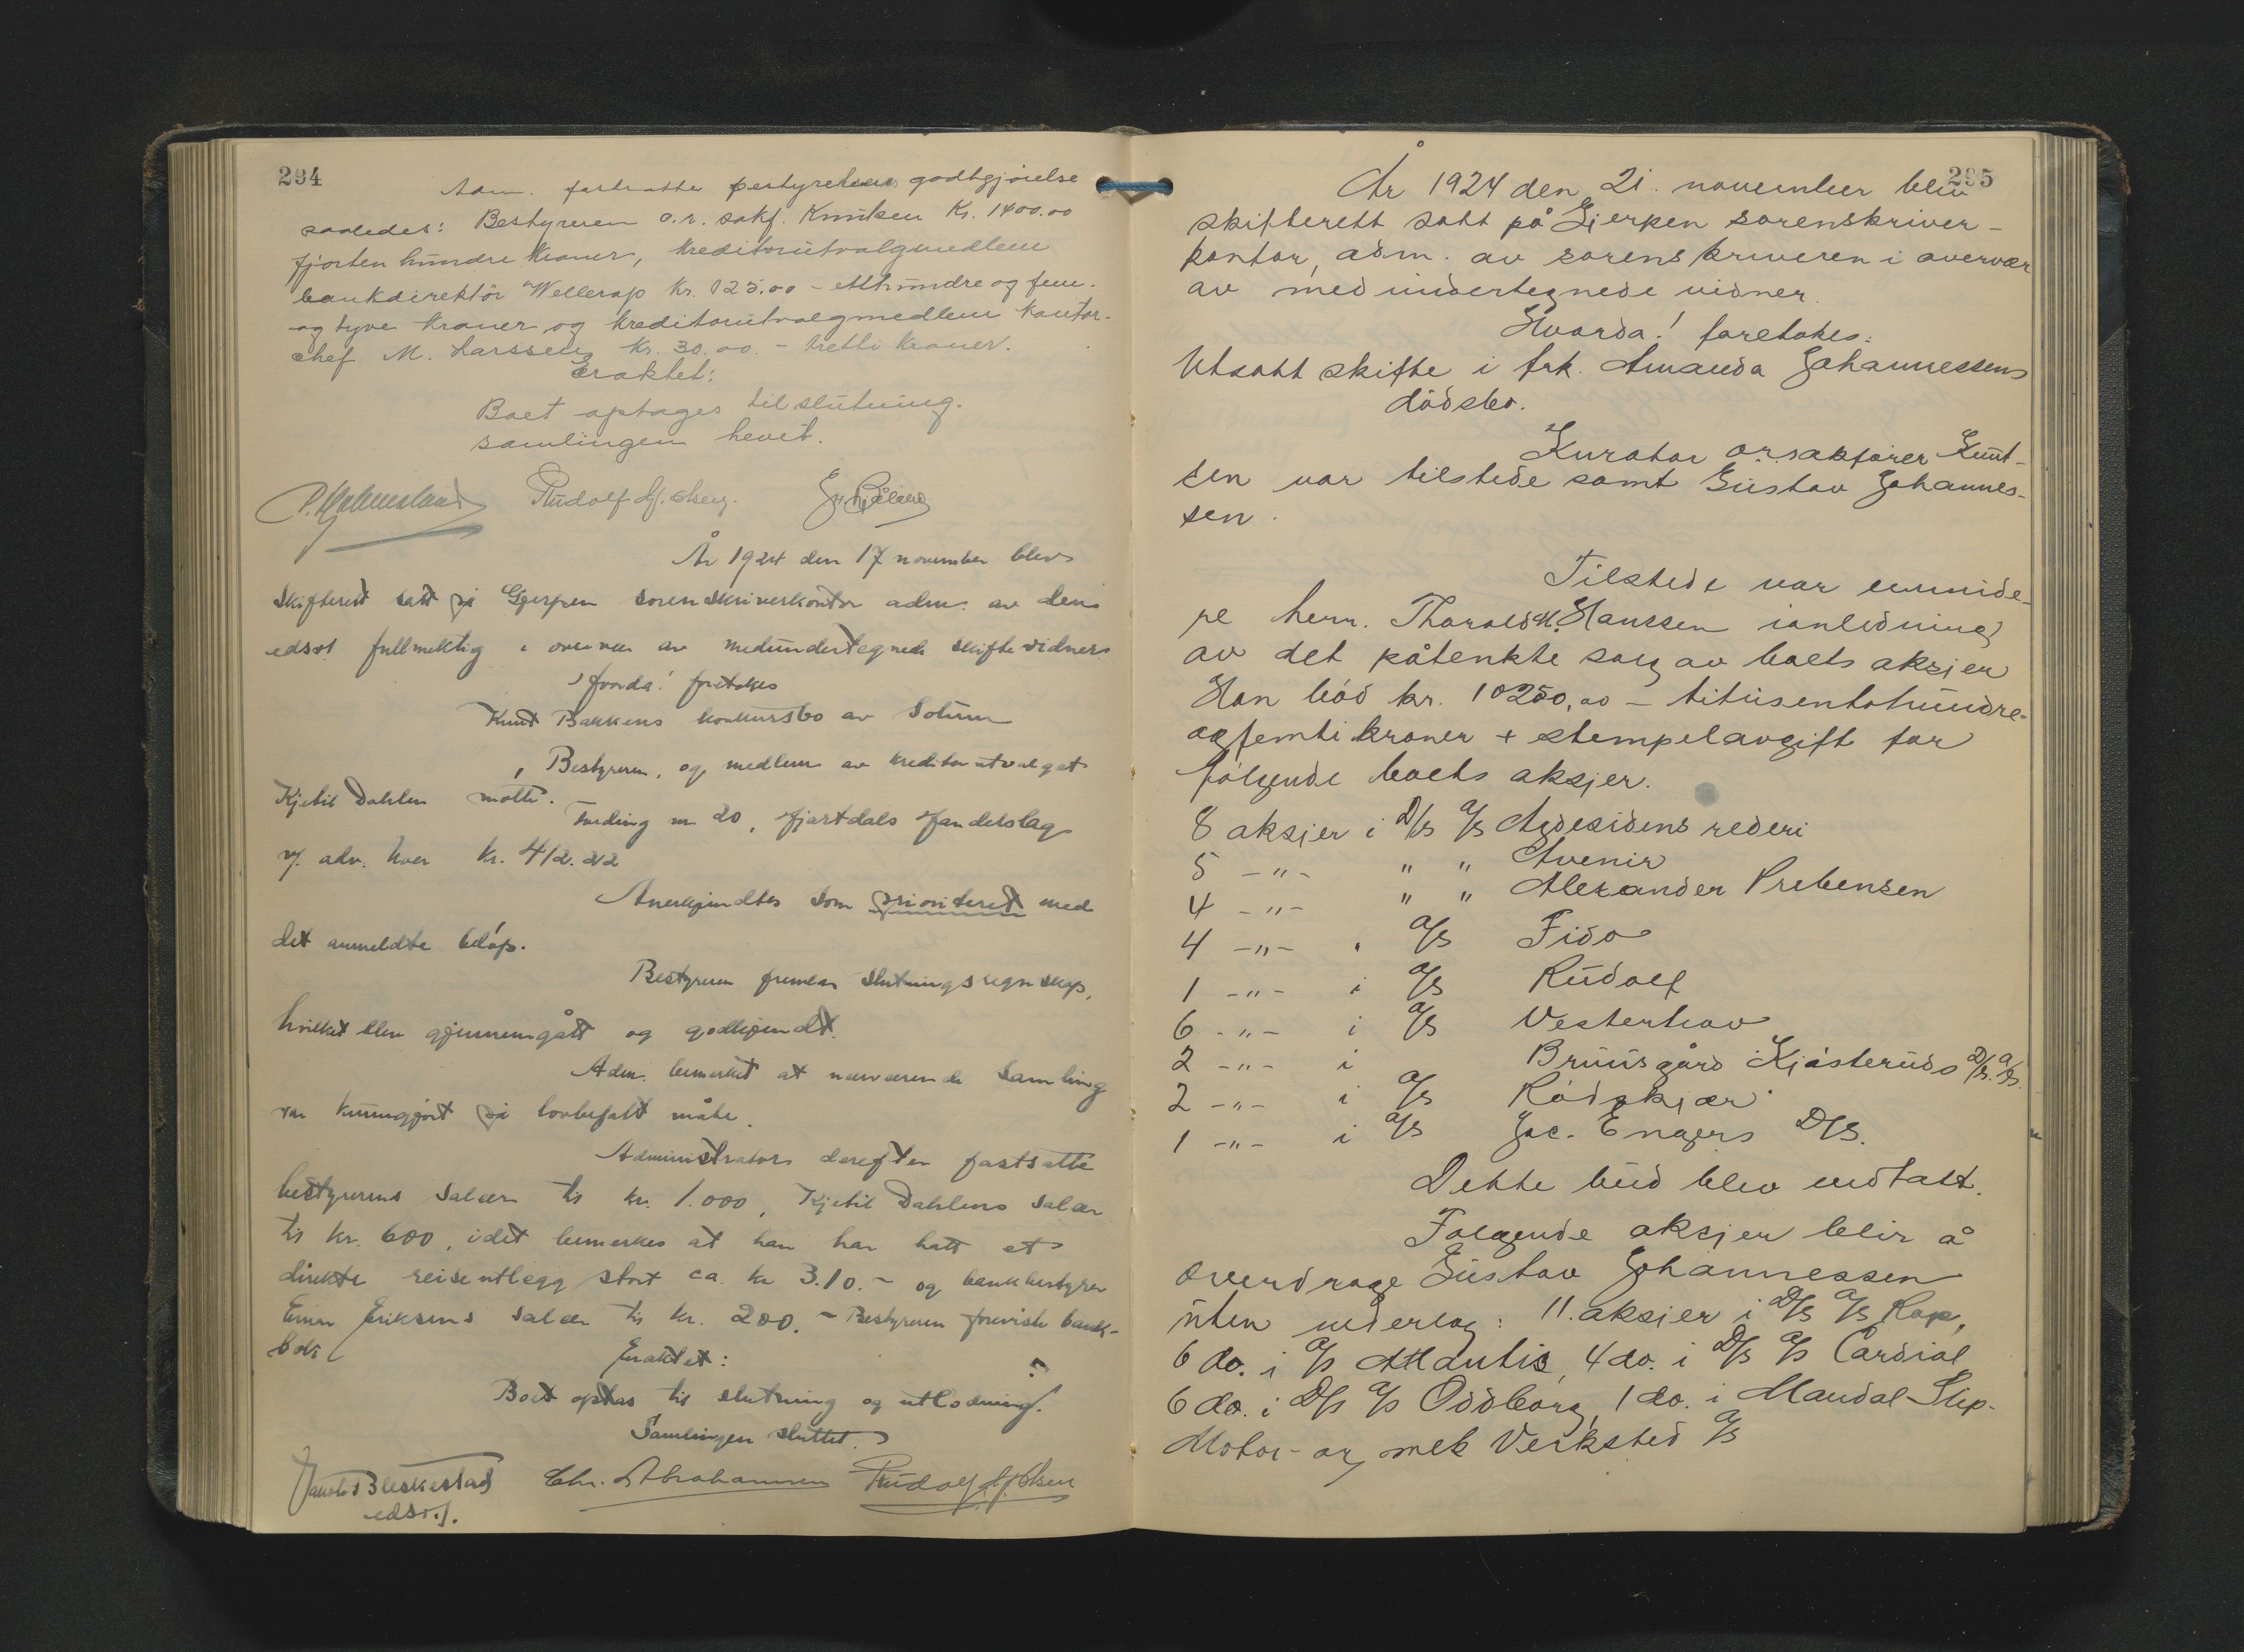 294
Adm. fastsatte bestyrelsens godtgjörelse
saaledes: Bestyreren o.r. sakf. Knutsen Kr. 1400.00
fjorten hundre kroner, kreditorutvalgmedlem
bankdirektör Wellerop kr. 125.00 - etthundre og fem-
og tyve kroner og kreditorutvalgmedlem kontor-
chef M. Larssen kr. 30.00. - tretti kroner.
Eraktet:
Boet optages til slutning.
samlingen hevet.
Rudolf
År 1924 den 17 november blev
skifterett satt på Gjerpen sorenskriverkontor adm. av dens
edsv. fullmektig i overvær av medundertegnede skiftevidner
Hvorda! foretokes
Knut Bakkens konkursbo av Solum
Bestyreren, og medlem av kreditorutvalget
Kjetil Dahlen møtte.
Fording nr. 20, Hjartdals Handelslag
v/. adv. Hver kr. 412.22
Anerkjendtes som prioriteret med
det anmeldte belöp.
Bestyreren fremla slutningsregnskap,
hvilket blev gjennemgått og godkjendt.
Adm. bemerket at nærværende samling
var kunngjort på lovbefalt måte.
Administrator derefter fastsatte
bestyrerens salær til kr. 1.000, Kjetil Dahlens salær
til kr. 600, idet bemerkes at han har hatt et
direkte reiseutlegg stort ca. kr 310.- og bankbestyrer
Einar Eriksens salær til kr. 200.- Bestyreren foreviste bank-
bok
Eraktet:
Boet optas til slutning og utlodning.
Samlingen sluttet.
Jacob Bleskestad Chr. Abrahamsen Rudolf Hj. Olsen
edsv. f.
295
År 1924 den 21. november blev
skifterett satt på Gjerpen sorenskriver-
kontor, adm. av sorenskriveren i overvær
av medundertegnede vidner.
Hvorda! foretokes:
Utsatt skifte i frk. Amanda Johannessens
dödsbo.
Kurator o.r.sakförer Knut-
sen var tilstede samt Gustav Johannes-
sen.
Tilstede var ennvide-
re herr. Thorolf M. Hanssen i anledning
av det påtenkte salg av boets aksjer
Han böd kr. 10250,00 - titusentohundre-
ogfemti kroner + stempelavgift for
følgende boets aksjer.
8 aksjer i D/S A/S Agdesidens rederi
5 -"- " " Avenir
4 -"- " " Alexander Prebensen
4 -"- " A/S Fido
1 -"- i A/S Rudolf
6 -"- i A/S Vesterhav
2 -"- i Bruusgård Kjösteruds D/S. A/S.
2 -"- i A/S Rödskjær
1 -"- i A/S Jac. Engers D/S.
Dette bud blev mottatt.
Følgende aksjer blir å
overdrage Gustav Johannessen
uten vederlag: 11 aksjer i D/S A/S Rap,
6 do. i A/S Atlantis, 4 do. i D/S A/S Cardial
6 do. i D/S A/S Oddborg, 1 do. i Mandal Slip-
Motor- og mek Verksted A/S